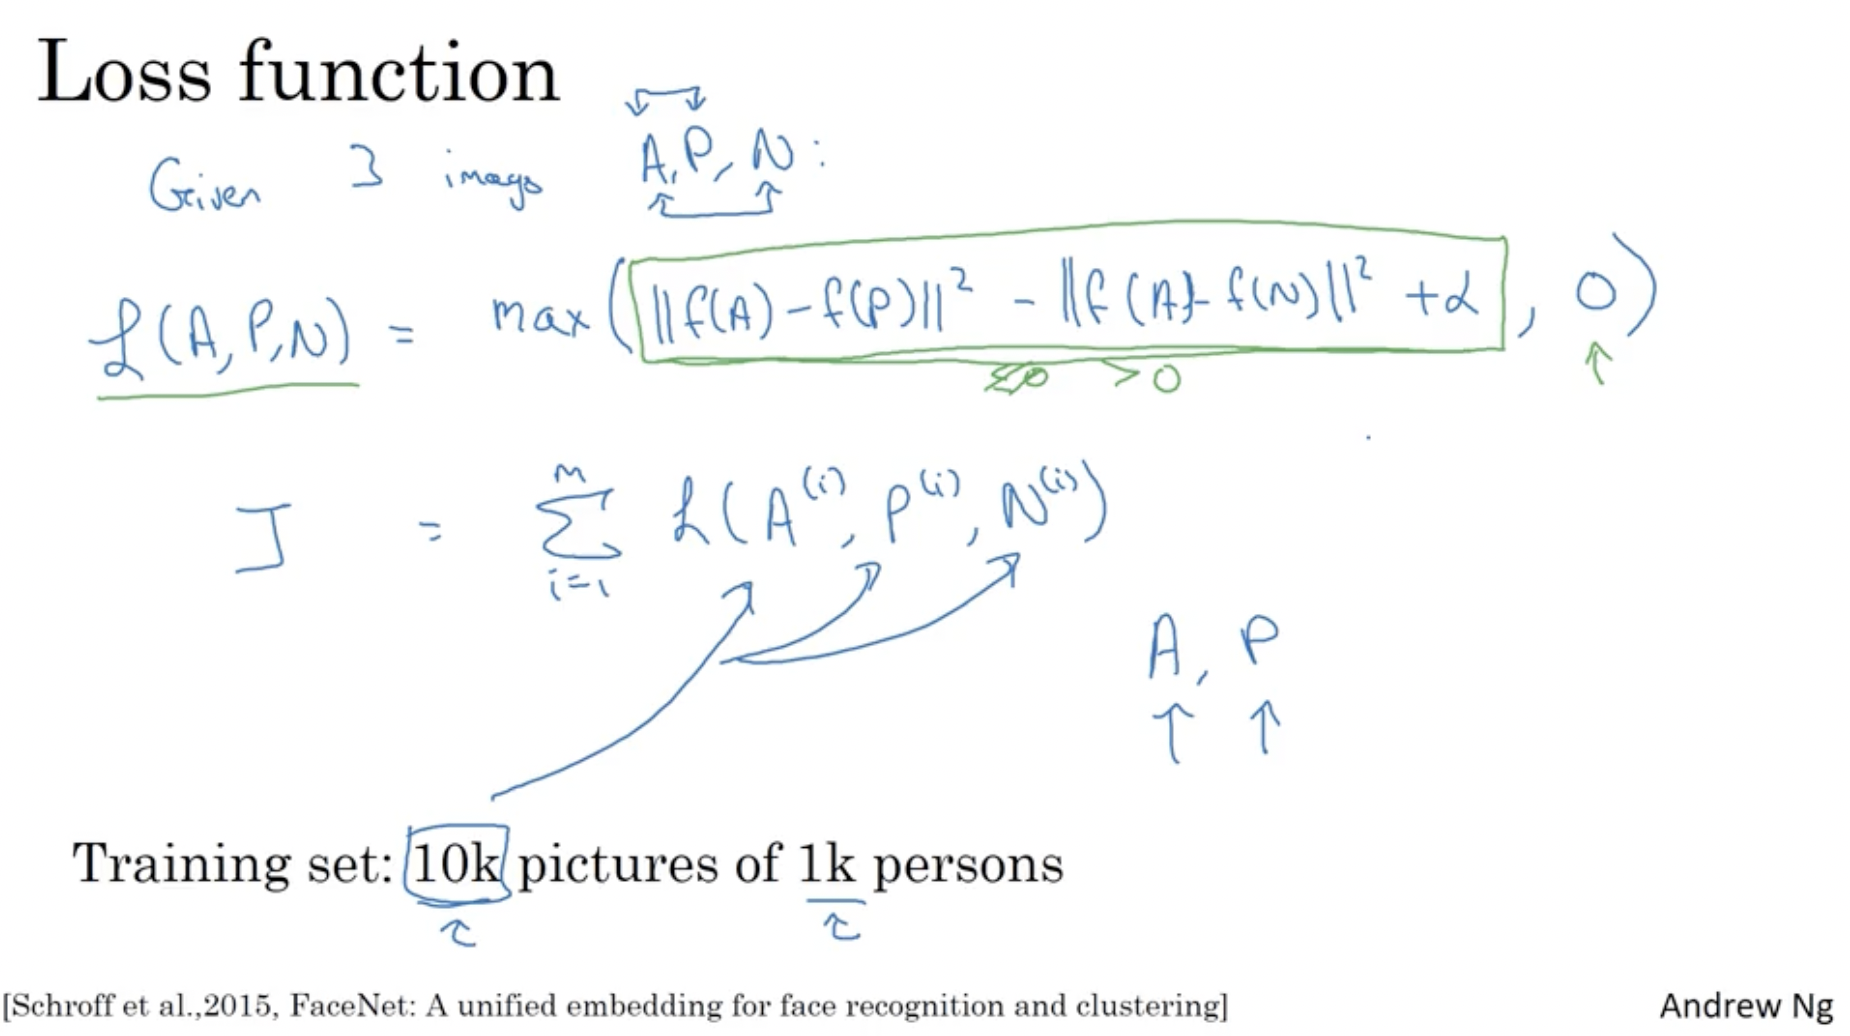 Loss function
Given 3 images A, P, N:
ℒ(A, P, N) = max(||f(A) - f(P)||² - ||f(A) - f(N)||² + α, 0)
> 0
J = Σ_{i=1}^{m} ℒ(A^{(i)}, P^{(i)}, N^{(i)})
A, P
Training set: 10k pictures of 1k persons
[Schroff et al.,2015, FaceNet: A unified embedding for face recognition and clustering]
Andrew Ng